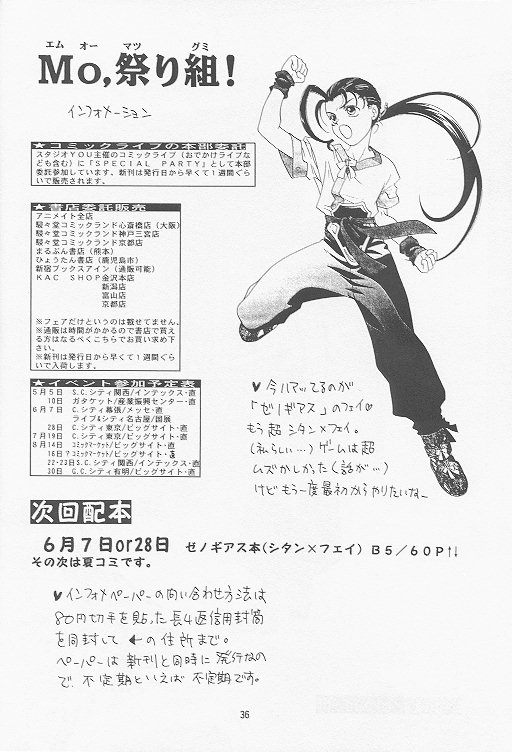 エム オー マツ グミ
Mo,祭り組!
インフォメーション
★コミックライブの本部委託
スタジオYOU主催のコミックライブ(おでかけライブな
ども含む)に「SPECIAL PARTY」として本部
委託参加しています、新刊は発行日から早くて1週間ぐら
いで販売されます。
★書店委託販売
アニメイト全店
駸々堂コミックランド心斎橋店(大阪)
駸々堂コミックランド神戸三宮店
駸々堂コミックランド京都店
まるぶん書店(熊本)
ひょうたん書店(鹿児島市)
新宿ブックスアイン(通販可能)
KAC SHOP金沢本店
新潟店
富山店
京都店
※フェアだけというのは載せてません。
※通販は時間がかかるので書店で買え
る方はなるべくこちらでお買い求め下
さい。
※新刊は発行日から早くて1週間ぐら
いで入荷します。
★イベント参加予定表
5月5日 S.C.シティ関西/インデックス・直
10日 ガタケット/産業振興センター・直
6月7日 C.シティ幕張/メッセ・直
ライブ&シティ名古屋/国展
28日 C.シティ東京/ビッグサイト・直
7月19日 C.シティ東京/ビッグサイト・直
8月14日 コミックマーケット/ビッグサイト・直
16日?コミックマーケット/ビッグサイト・直
22-23日S.C.シティ関西/インテックス・直
30日 G.C.シティ有明/ビッグサイト・直
♥今ハマッてるのが
「ゼノギアス」のフェイ♡
もう超シタン×フェイ。
(私らしい…)ゲームは超
ムズかしかった(話が…)
けどもう一度最初からやりたいな~
次回配本
6月7日or28日 ゼノギアス本(シタン×フェイ) B5/60P↑↓
その次は夏コミです。
♥インフォペーパーの問い合わせ方法は
80円切手を貼った長4返信用封筒
を同封して←の住所まで。
ペーパーは新刊と同時に発行なの
で不定期といえば不定期です。
36